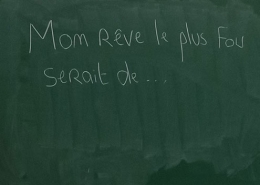 Mon Rêve le plus Fou
serait de...